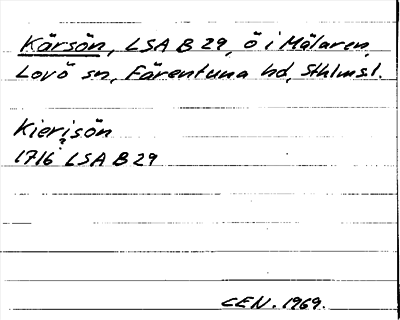 Kärsön, LSA B 29, ö i Mälaren,
Lovö sn, Färentuna hd, Sthlmsl.
Kierisön
?
1716 LSA B 29
CEN. 1969.